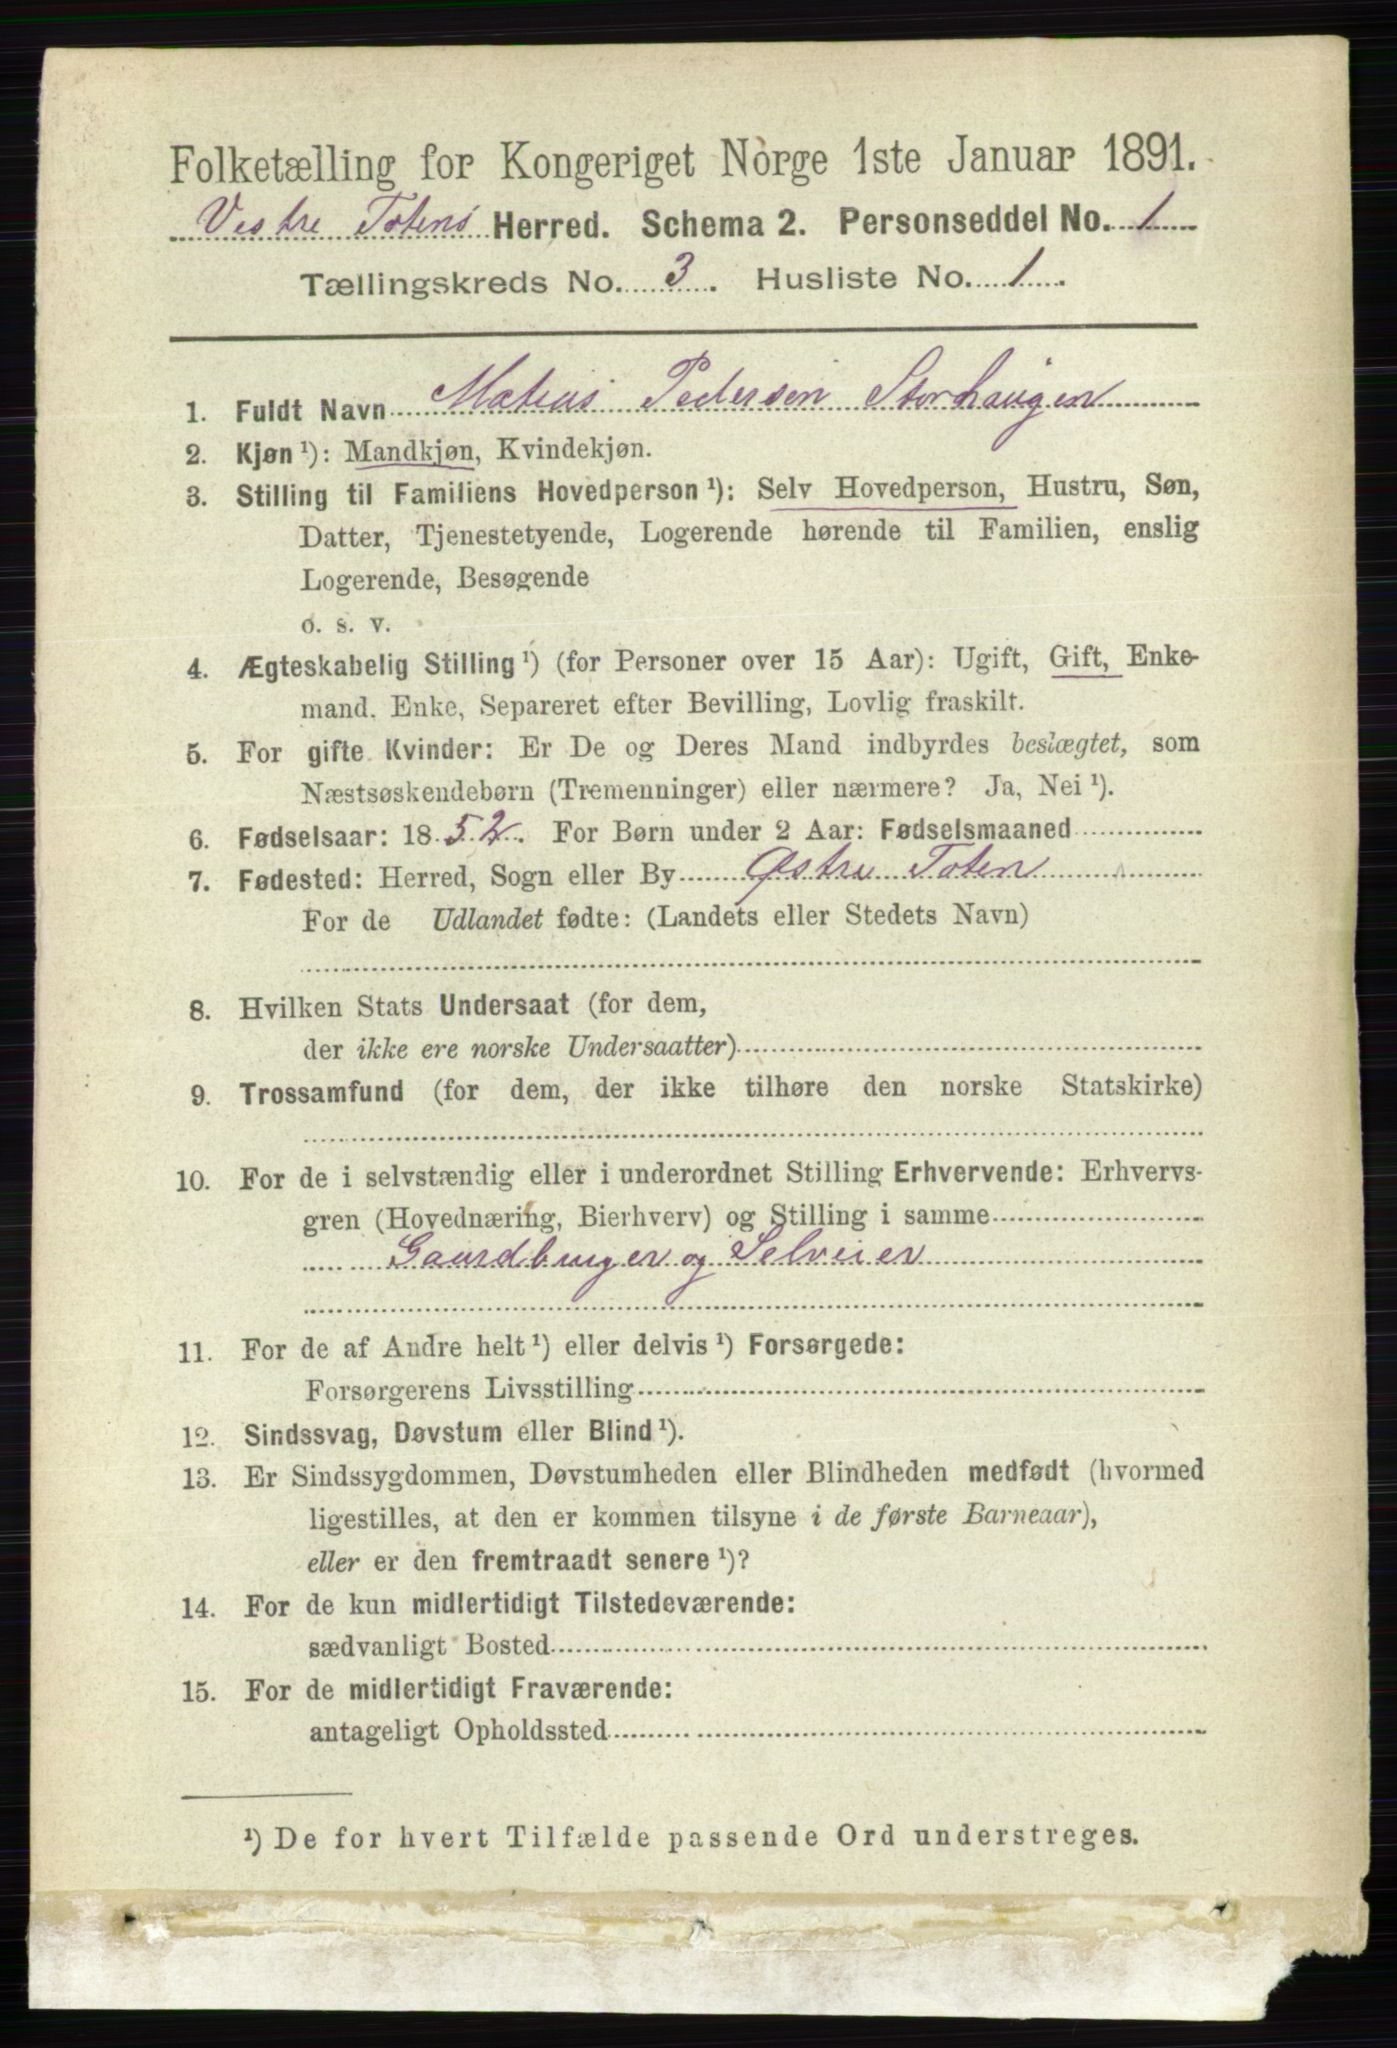 Folketælling for Kongeriget Norge 1ste Januar 1891.
Vestre Totens Herred. Schema 2. Personseddel No. 1
Tællingskreds No. 3. Husliste No. 1.
1. Fuldt Navn Mateus Pedersen Storhaugen
2. Kjøn ¹): Mandkjøn, Kvindekjøn.
3. Stilling til Familiens Hovedperson ¹): Selv Hovedperson, Hustru, Søn,
Datter, Tjenestetyende, Logerende hørende til Familien, enslig
Logerende, Besøgende
o. s. v.
4. Ægteskabelig Stilling ¹) (for Personer over 15 Aar): Ugift, Gift, Enke-
mand, Enke, Separeret efter Bevilling, Lovlig fraskilt.
5. For gifte Kvinder: Er De og Deres Mand indbyrdes beslægtet, som
Næstsøskendebørn (Tremenninger) eller nærmere? Ja, Nei ¹).
6. Fødselsaar: 1852. For Børn under 2 Aar: Fødselsmaaned
7. Fødested: Herred, Sogn eller By Østre Toten
For de Udlandet fødte: (Landets eller Stedets Navn)
8. Hvilken Stats Undersaat (for dem,
der ikke ere norske Undersaatter)
9. Trossamfund (for dem, der ikke tilhøre den norske Statskirke)
10. For de i selvstændig eller i underordnet Stilling Erhvervende: Erhvervs-
gren (Hovednæring, Bierhverv) og Stilling i samme
Gaardbruger og Selveier
11. For de af Andre helt ¹) eller delvis ¹) Forsørgede:
Forsørgerens Livsstilling
12. Sindssvag, Døvstum eller Blind ¹).
13. Er Sindssygdommen, Døvstumheden eller Blindheden medfødt (hvormed
ligestilles, at den er kommen tilsyne i de første Barneaar),
eller er den fremtraadt senere ¹)?
14. For de kun midlertidigt Tilstedeværende:
sædvanligt Bosted
15. For de midlertidigt Fraværende:
antageligt Opholdssted
¹) De for hvert Tilfælde passende Ord understreges.